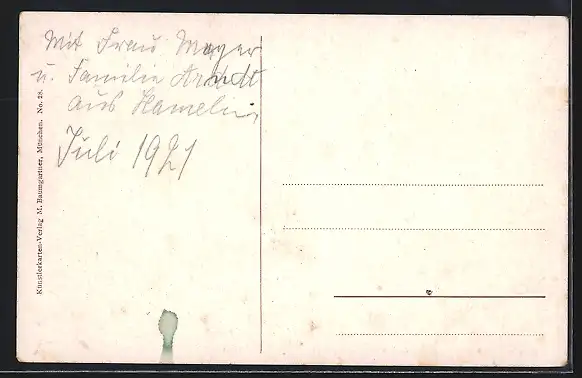 Mit Frau Meyer
u. Familie Arndt
aus Hameln,
Juli 1921
Künstlerkarten-Verlag M. Baumgartner, München. No. 28.